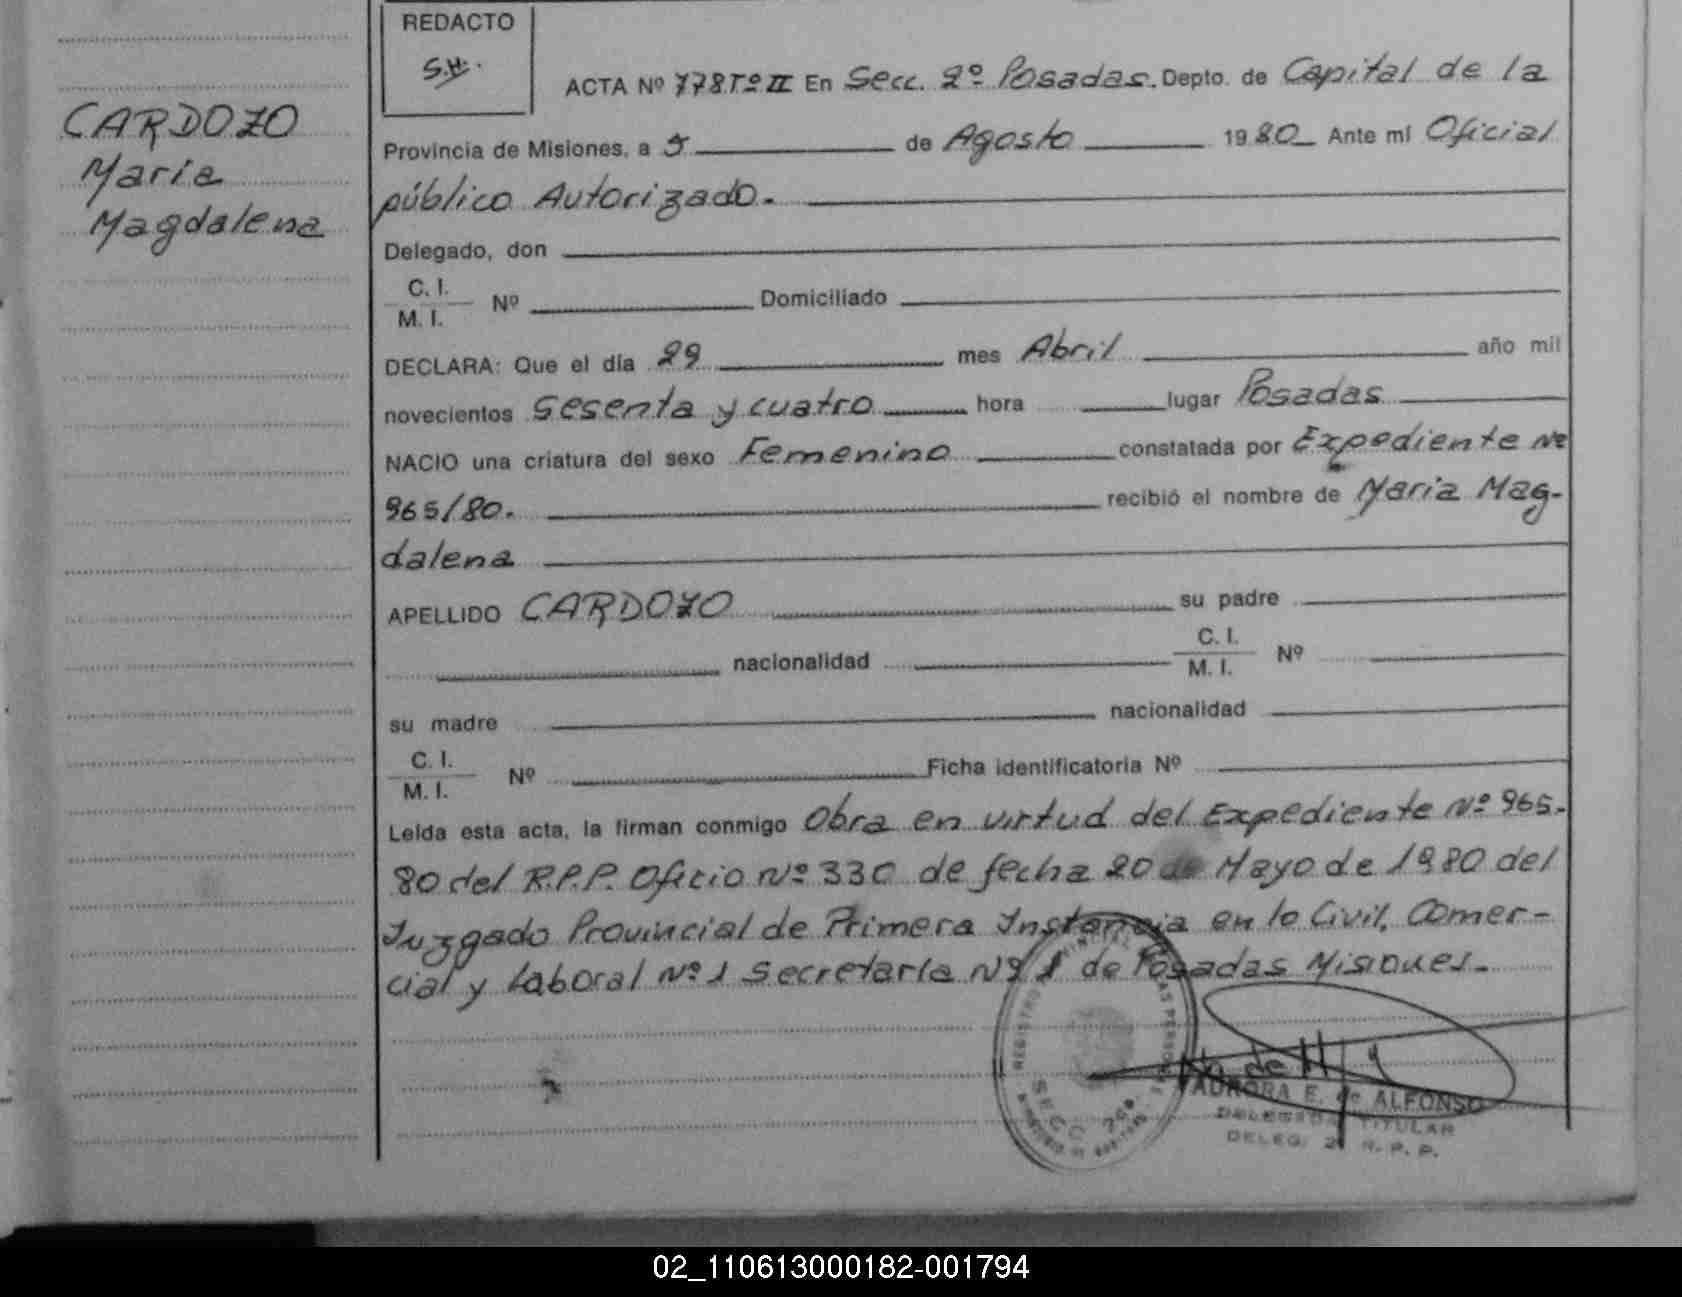 REDACTO
S.H.
CARDOZO
María
Magdalena
ACTA Nº 778 Tº II En Secc. 2º Posadas. Depto. de Capital de la
Provincia de Misiones, a 5 de Agosto 1980 Ante mi Oficial
público Autorizado.
Delegado, don
C. I.
M. I. Nº Domiciliado
DECLARA: Que el día 29 mes Abril año mil
novecientos sesenta y cuatro hora lugar Posadas
NACIO una criatura del sexo Femenino constatada por Expediente Nº
965/80. recibió el nombre de María Mag-
dalena
APELLIDO CARDOZO su padre
nacionalidad C. I.
M. I. Nº
su madre nacionalidad
C. I.
M. I. Nº Ficha identificatoria Nº
Leída esta acta, la firman conmigo Obra en virtud del Expediente Nº 965-
80 del R.P.P. Oficio Nº 330 de fecha 20 de Mayo de 1980 del
Juzgado Provincial de Primera Instancia en lo Civil, Comer-
cial y Laboral Nº 1 Secretaría Nº 1 de Posadas Misiones.-
AURORA E. de ALFONSO
DELEGADA TITULAR
DELEG. 2ª R. P. P.
02_110613000182-001794